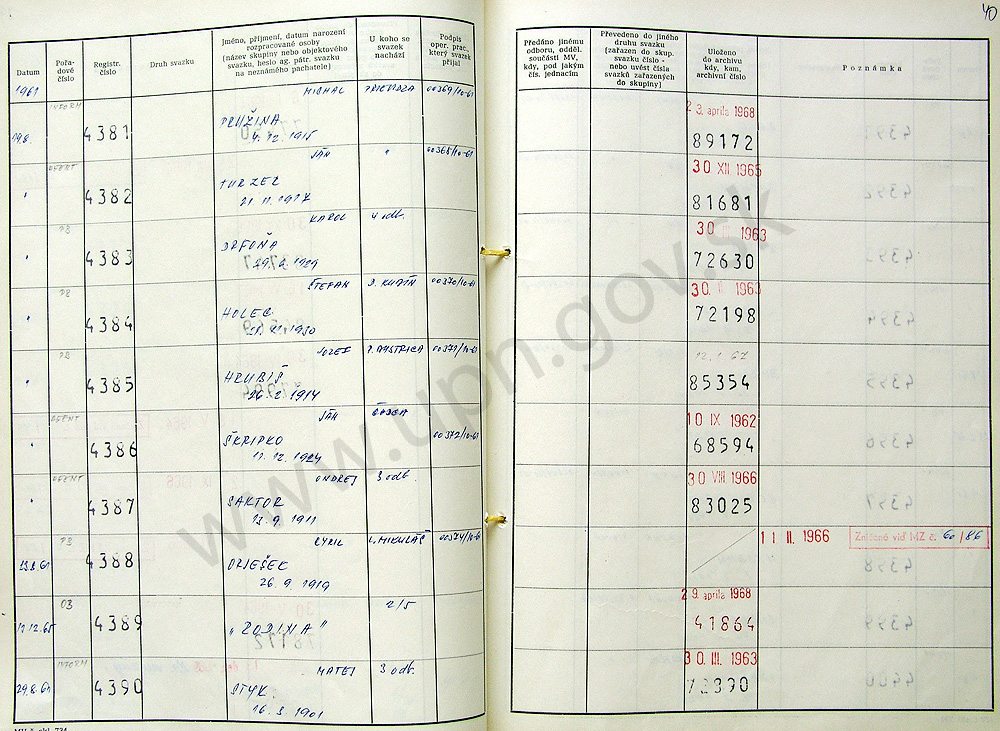 40
Datum
Pořa-
dové
číslo
Registr.
číslo
Druh svazku
Jméno, příjmení, datum narození
rozpracované osoby
(název skupiny nebo objektového
svazku, heslo ag. pátr. svazku
na neznámého pachatele)
U koho se
svazek
nachází
Podpis
oper. prac.,
který svazek
přijal
Předáno jinému
odboru, odděl.
součásti MV,
kdy, pod jakým
čís. jednacím
Převedeno do jiného
druhu svazku
(zařazen do skup.
svazku číslo -
nebo uvést čísla
svazků zařazených
do skupiny)
Uloženo
do archivu
kdy, kam,
archivní číslo
Poznámka
1961 INFORM MICHAL PRIEVIDZA 00369/10-61
4381 PRUŽINA
4.12.1915
23. apríla 1968
89172
AGENT JÁN " 00368/10-61
" 4382 TURZEC
21.11.1917
30 XII 1965
81681
KAROL 4 odb.
" 4383
30 1963
72630
ŠTEFAN D. KUBÍN 00370/10-61
" 4384 HOLEC
30. 1963
72198
JOZEF P. BYSTRICA 00371/10-61
" 4385 HRUBIŠ
26.2.1914
12.1.67
85354
AGENT JÁN ČADCA 00372/10-61
" 4386 ŠKRIPKO
11.12.1924
10 IX 1962
68594
AGENT ONDREJ 3 odb.
" 4387 SAKTOR
13.9.1911
30 VIII 1966
83025
CYRIL L. MIKULÁŠ
4388 ORIEŠEK
26.9.1919
11 II. 1966
Zničené viď MZ č. 60/86
03 2/5
12.12.65 4389 „RODINA"
29. apríla 1968
41864
INFORM MATEJ 3 odb.
29.8.61 4390 STYK
16.3.1901
30. III. 1963
72390
www.upn.gov.sk